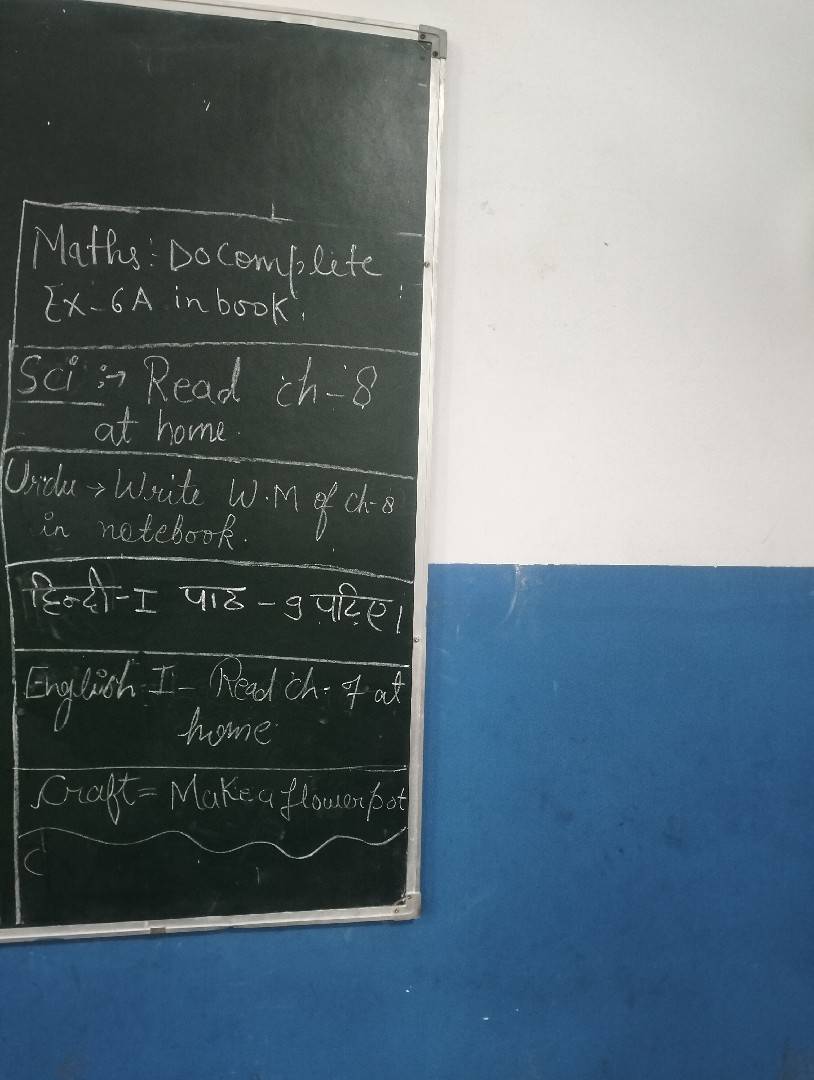 Maths: Do complete
Ex-6A in book.
Sci :→ Read ch-8
at home.
Urdu → Write W.M of ch-8
in notebook.
हिन्दी-I पाठ - 9 पढ़िए।
English I- Read ch- 7 at
home
Craft = Make a flower pot
C